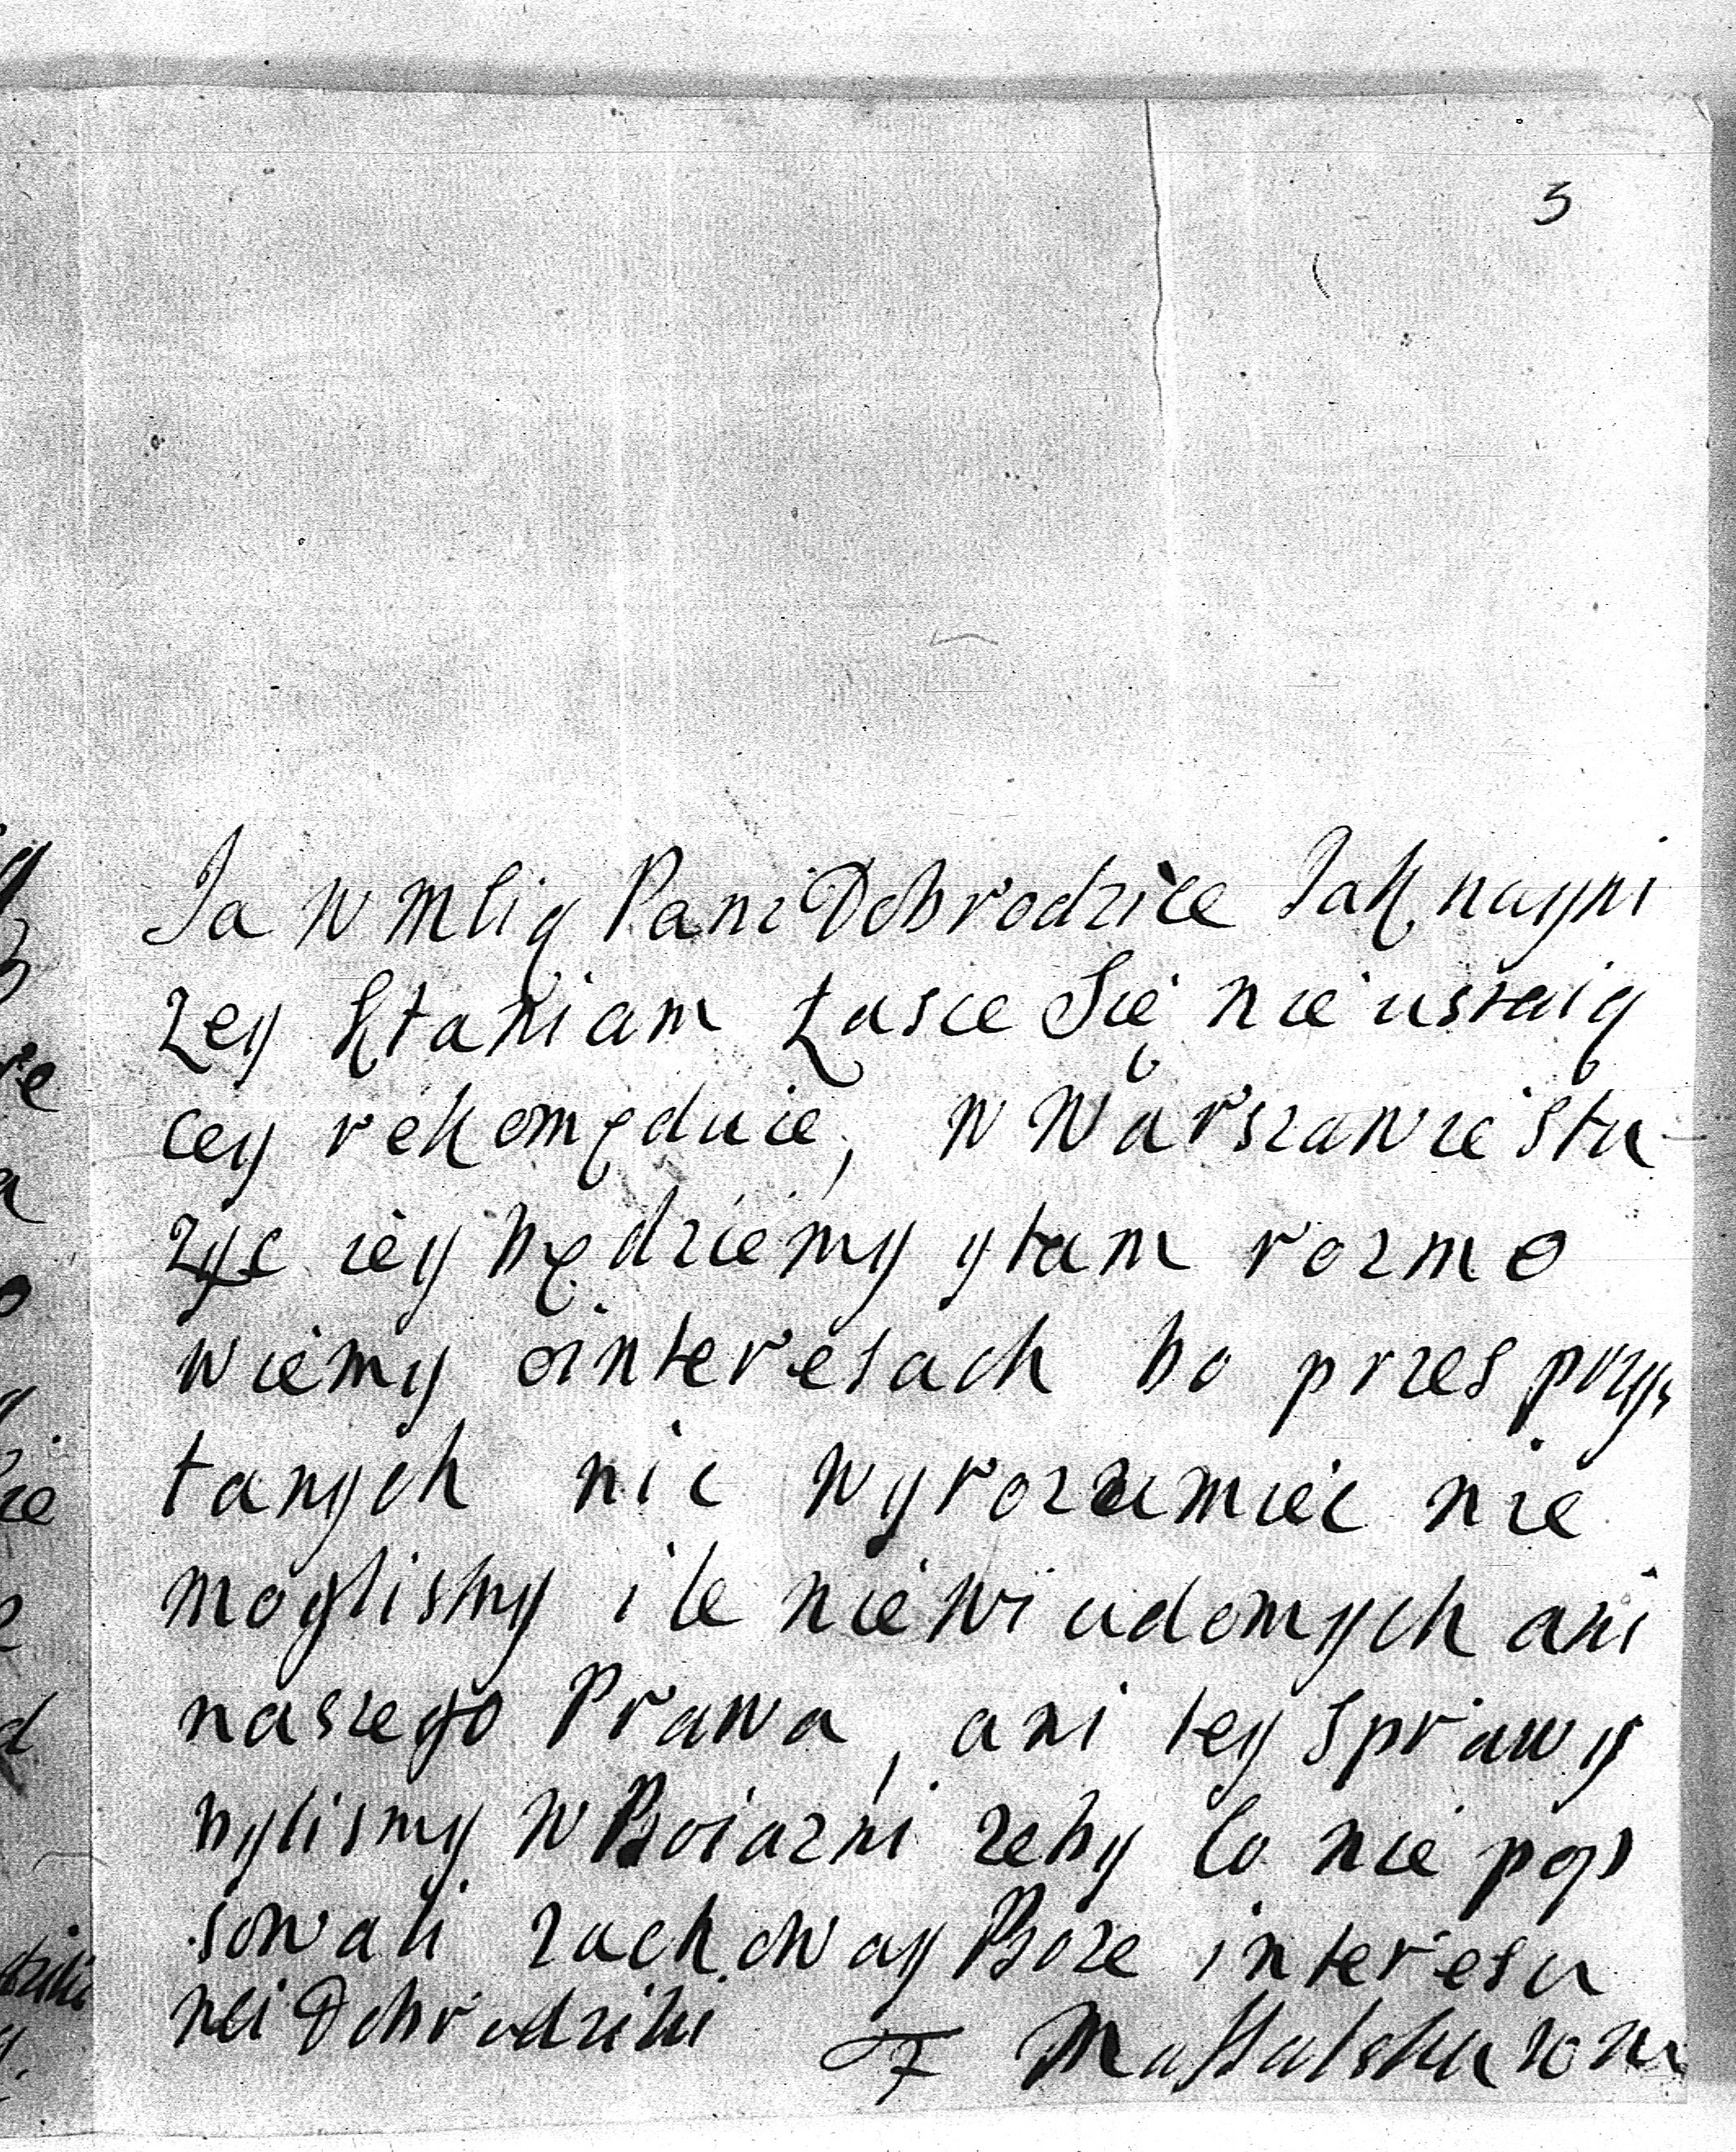 3
Ja W M Cią Pani Dobrodzice Jak nayni
zey kłaniam łasce Się nieustaią
cey rekomęduie, w Warszawie słu
życ iey będziemy ytam rozmo
wiemy ointeresach bo przes przys
łanych nic wyrozumiec nie
moglismy ile niewiadomych ani
naszego Prawa, ani tey sprawy
bylismy w Boiazni zeby Co nie pop
sowali zachoway Boze interesu
Dobrodziki F Massalska